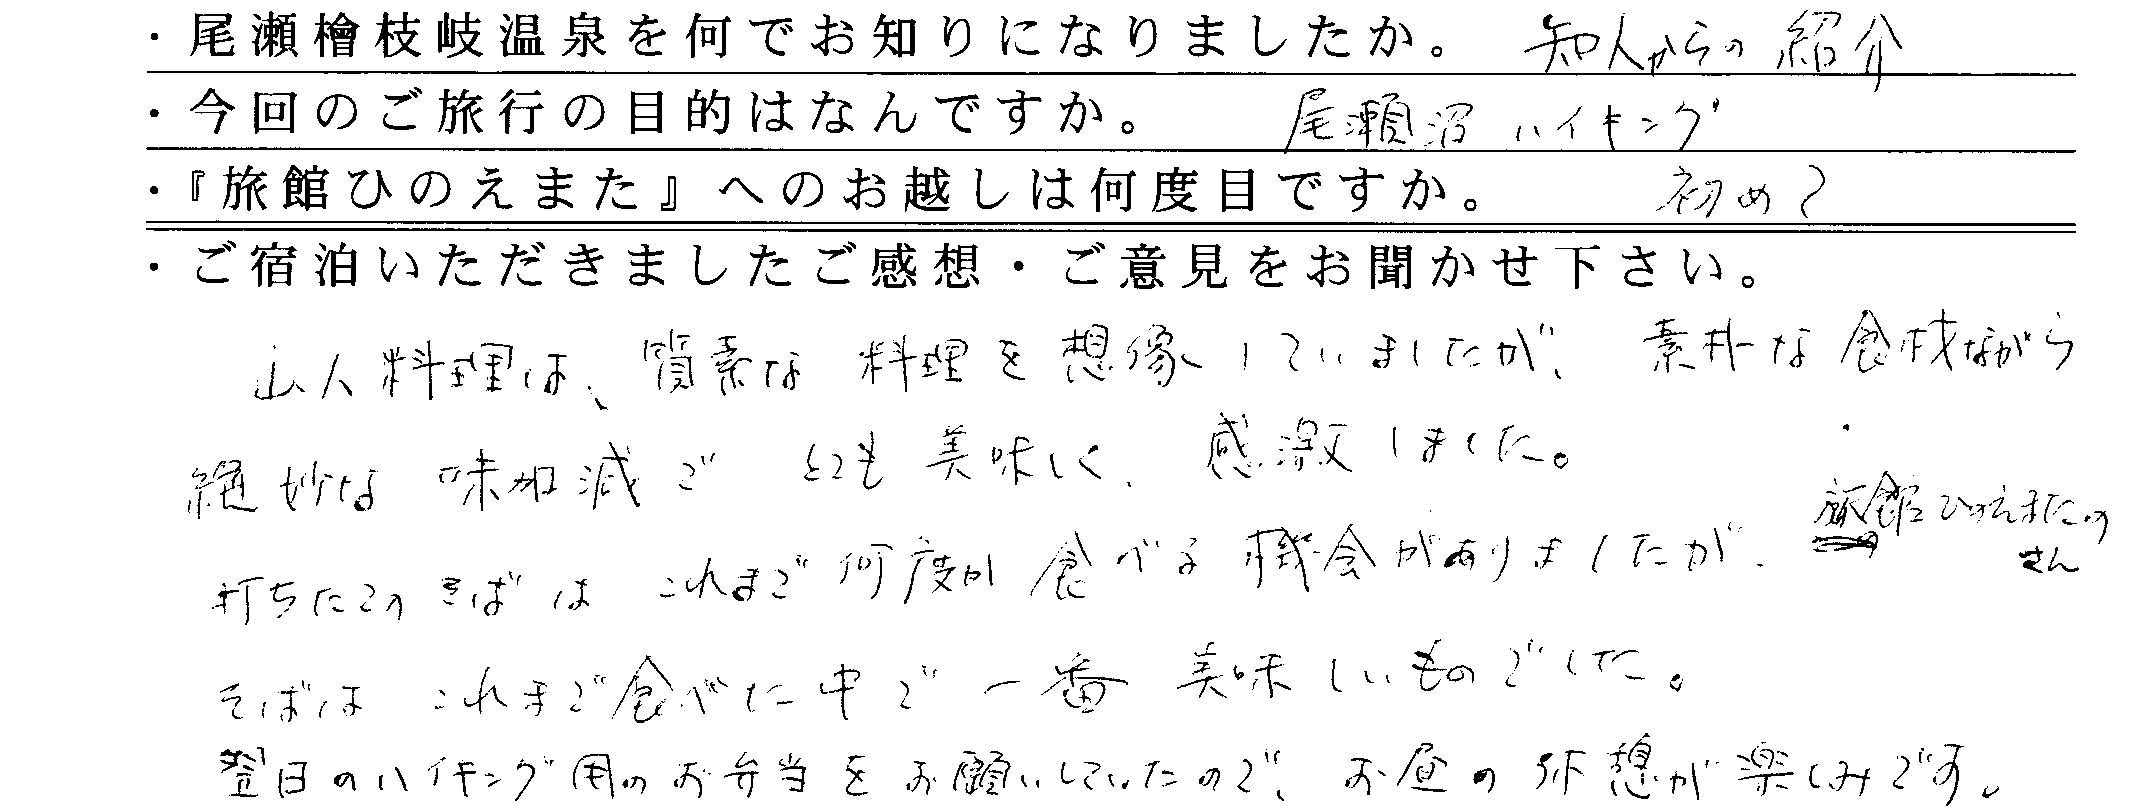 ・尾瀬檜枝岐温泉を何でお知りになりましたか。 知人からの紹介
・今回のご旅行の目的はなんですか。 尾瀬沼ハイキング
・『旅館ひのえまた』へのお越しは何度目ですか。 初めて
・ご宿泊いただきましたご感想・ご意見をお聞かせ下さい。
山人料理は、質素な料理を想像していましたが、素朴な食材ながら
絶妙な味加減で とても美味しく、感激しました。
打ちたての そばは これまで何度か食べる機会がありましたが、旅館ひのえまたの
さん
そばは これまで食べた中で一番 美味しいものでした。
翌日のハイキング用のお弁当をお願いしていたので、お昼の が楽しみです。